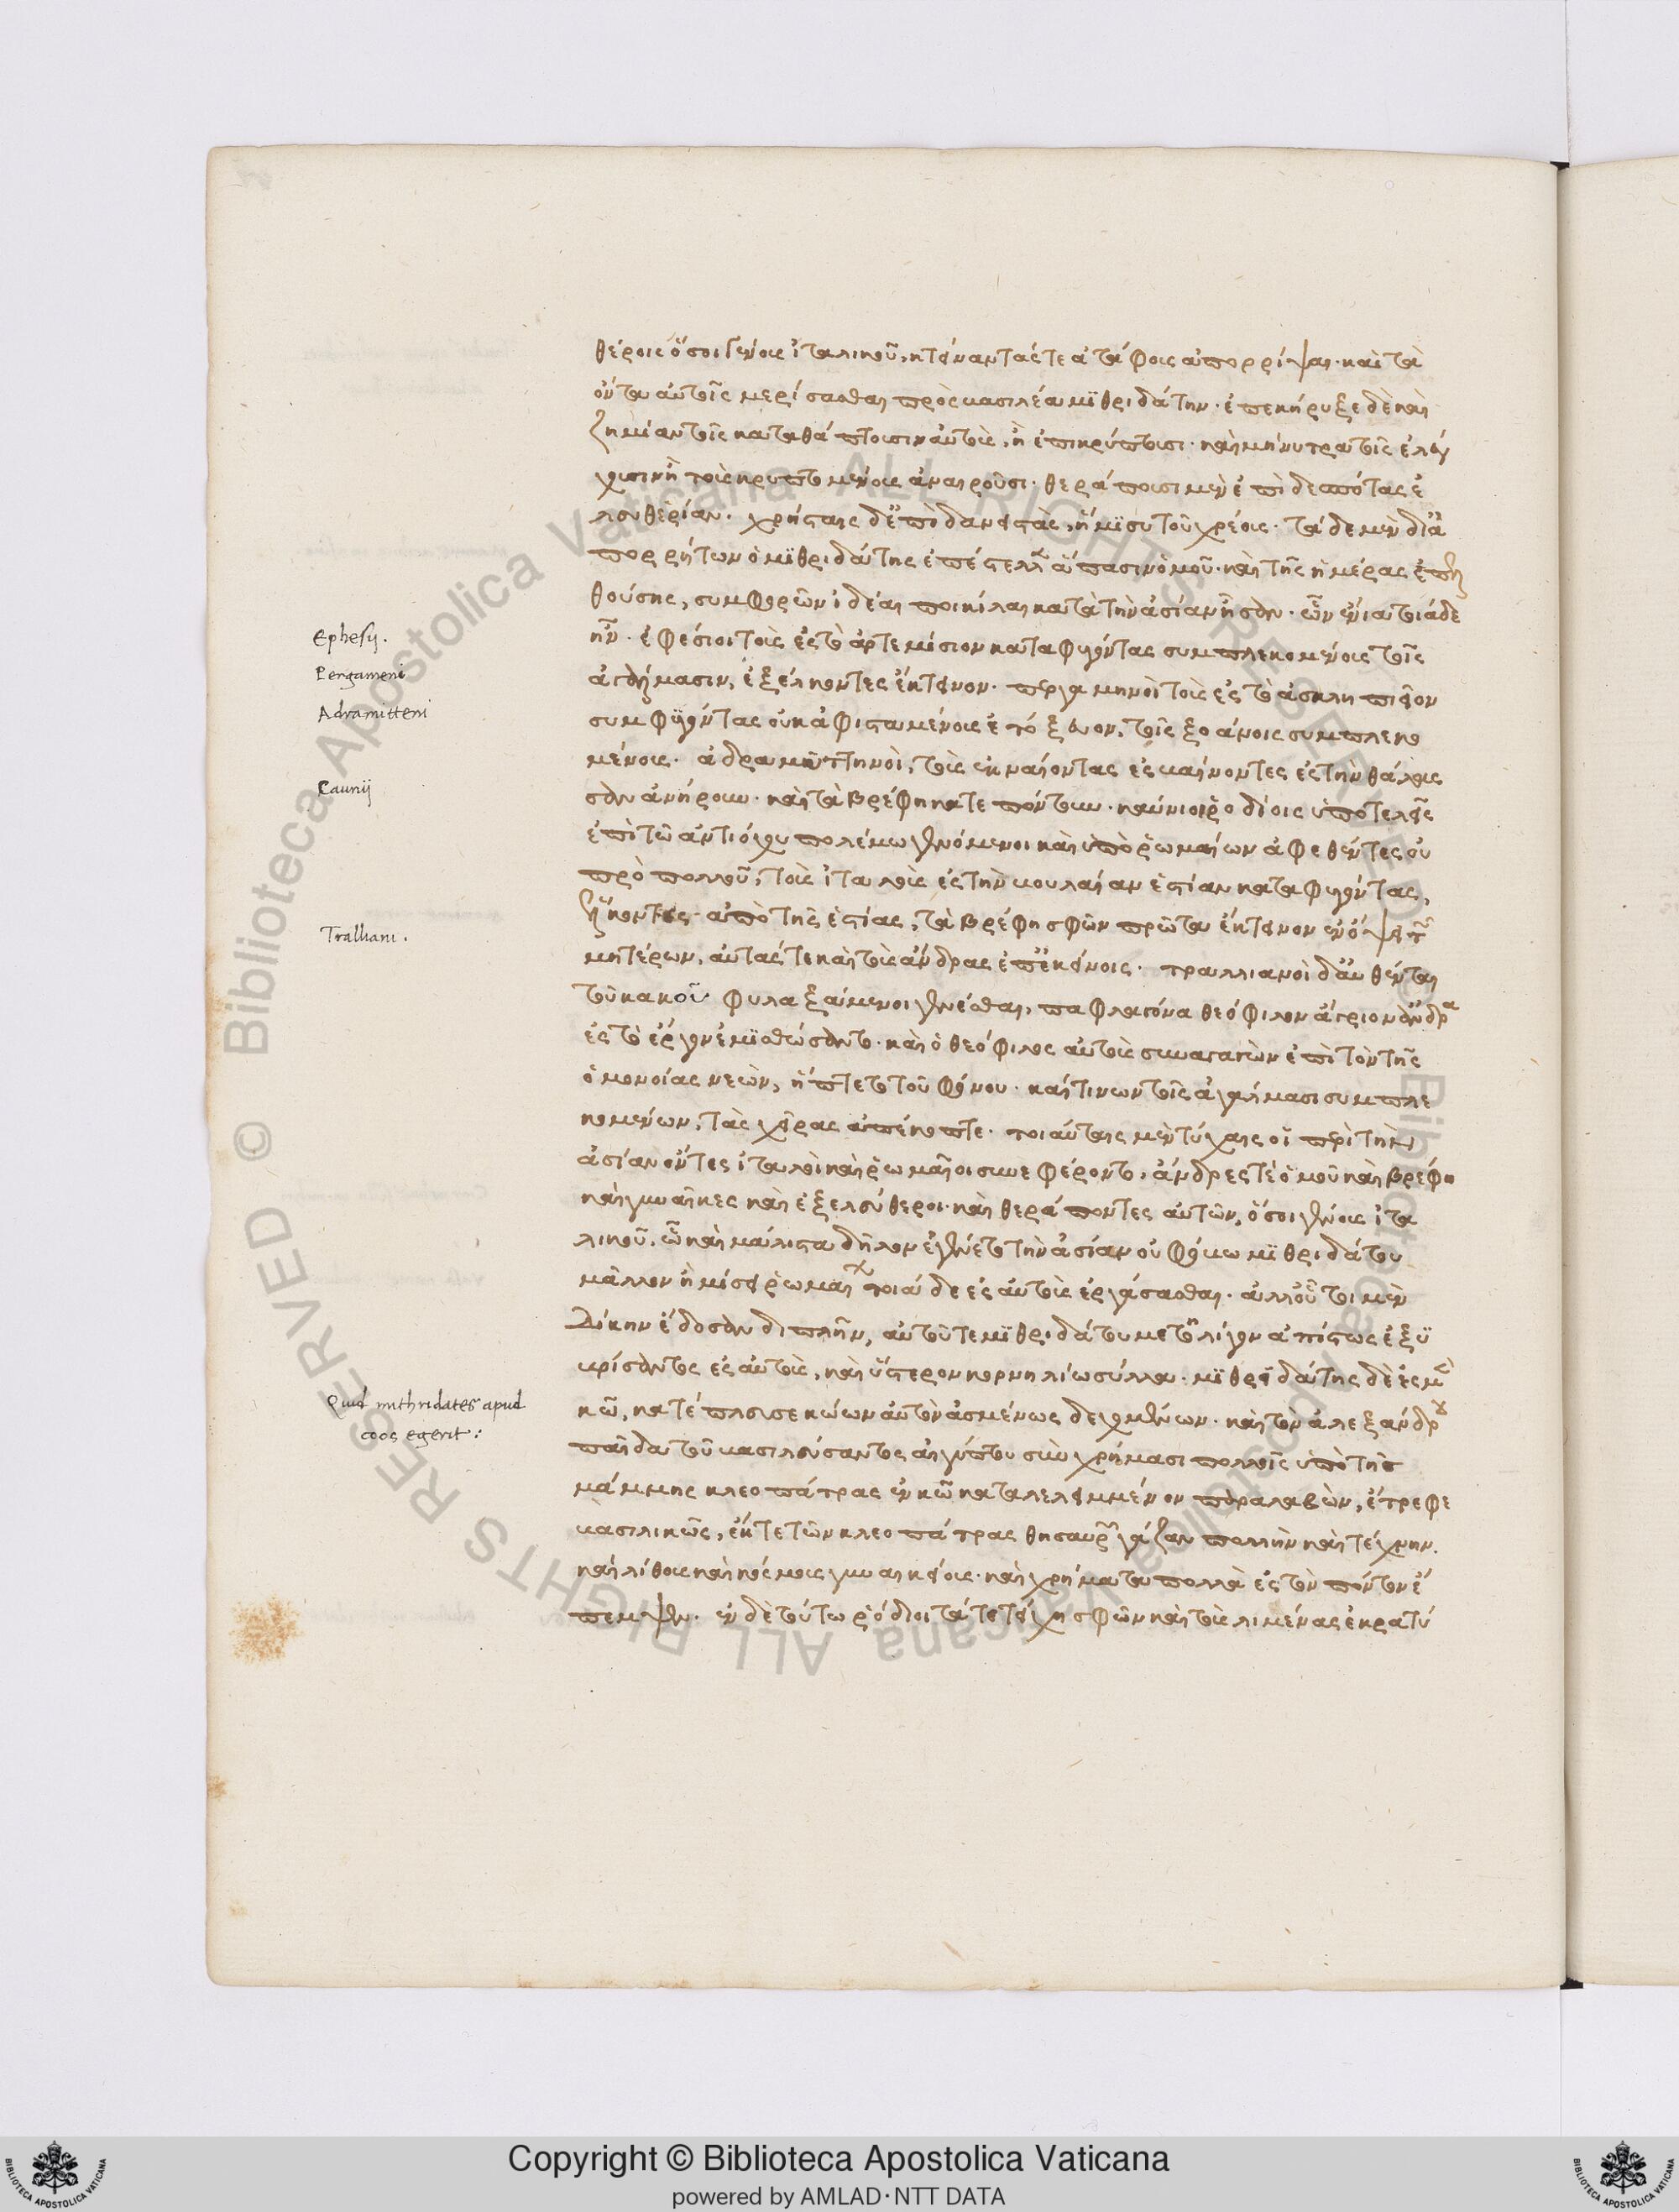 θέροις ὅσοι γένους ἰταλικοῦ, κτείναντάς τε ἀτάφους ἀπορρίψαι· καὶ τὰ
ὄντα αὐτοῖς μερίσασθαι πρὸς βασιλέα μϊθριδάτην· ἐπεκήρυξε δὲ καὶ
ζημίαν τοῖς καταθάπτουσιν αὐτοὺς, ἢ ἐπικρύπτουσι· καὶ μήνυτρα τοῖς ἐλέγ
χουσιν ἢ τοὺς κρυπτομένους ἀναιροῦσι· θεράπουσι μὲν ἐπὶ δεσπότας ἐ
λευθερίαν· χρήσταις δ' ἐπὶ δανειστὰς, ἥμϊσυ τοῦ χρέους· τάδε μὲν δι' ἀ
πορρήτων ὁ μϊθριδάτης ἐπέστελλεν ἅπασιν ὁμοῦ· καὶ τῆς ἡμέρας ἐπελ
θούσης, συμφορῶν ἰδέαι ποικίλαι κατὰ τὴν ἀσίαν ἦσαν· ὧν ἔνια τοιάδε
Ephesij.
ἦν· ἐφέσιοι τοὺς ἐς τὸ ἀρτεμίσιον καταφυγόντας συμπλεκομένους τοῖς
Pergameni
ἀγάλμασιν, ἐξέλκοντες ἔκτεινον· περγαμηνοὶ τοὺς ἐς τὸ ἀσκληπιεῖον
Adramitteni
συμφυγόντας οὐκ ἀφισταμένους ἐτόξευον, τοῖς ξοάνοις συμπλεκο
μένους· ἀδραμυττηνοὶ, τοὺς ἐκνέοντας ἐσβαίνοντες ἐς τὴν θάλασ
Caunij
σαν ἀνήρουν· καὶ τὰ βρέφη κατεπόντουν· καύνιοι ῥοδίοις ὑποτελεῖς
ἐπὶ τῶ ἀντιόχου πολέμω γενόμενοι καὶ ὑπὸ ῥωμαίων ἀφεθέντες οὐ
πρὸ πολλοῦ, τοὺς ἰταλοὺς ἐς τὴν βουλαίαν ἑστίαν καταφυγόντας,
ἕλκοντες ἀπὸ τῆς ἑστίας, τὰ βρέφη σφῶν πρῶτα ἔκτεινον ἐν ὄψει τῶν
Tralliani.
μητέρων, αὐτάς τε καὶ τοὺς ἄνδρας ἐπ' ἐκείνοις· τραλλιανοὶ δ' αὐθένται
τοῦ κακοῦ φυλαξάμενοι γενέσθαι, παφλαγόνα θεόφιλον ἄγριον ἄνδρα
ἐς τὸ ἔργον ἐμϊσθώσαντο· καὶ ὁ θεόφιλος αὐτοὺς συναγαγὼν ἐπὶ τὸν τῆς
ὁμονοίας νεὼν, ἥπτετο τοῦ φόνου· καί τινων τοῖς ἀγάλμασι συμπλε
κομένων, τὰς χεῖρας ἀπέκοπτε· τοιαύταις μὲν τύχαις οἱ περὶ τὴν
ἀσίαν ὄντες ἰταλοὶ καὶ ῥωμαῖοι συνεφέροντο, ἄνδρες τέ ὁμοῦ καὶ βρέφη
καὶ γυναῖκες καὶ ἐξελεύθεροι· καὶ θεράποντες αὐτῶν, ὅσοι γένους ἰτα
λικοῦ, ὧ καὶ μάλιστα δῆλον ἐγένετο τὴν ἀσίαν οὐ φόβω μϊθριδάτου
μᾶλλον ἢ μίσει ῥωμαίων τοιάδε ἐς αὐτοὺς ἐργάσασθαι· ἀλλ' οὗτοι μὲν
δίκην ἔδοσαν διπλῆν, αὐτοῦ τε μϊθριδάτου μετ' ὀλίγον ἀπίστως ἐξυ
βρίσαντος ἐς αὐτοὺς, καὶ ὕστερον κορνηλίω σύλλα· μϊθριδάτης δὲ ἐς μὲν
Quid mithridates apud
coos egerit:
κῶ, κατέπλευσε κώων αὐτὸν ἀσμένως δεχομένων· καὶ τὸν ἀλεξάνδρου
παῖδα τοῦ βασιλεύσαντος αἰγύπτου σὺν χρήμασι πολλοῖς ὑπὸ τῆς
μάμμης κλεοπάτρας ἐν κῶ καταλελειμμένον παραλαβὼν, ἔτρεφε
βασιλικῶς, ἔκ τε τῶν κλεοπάτρας θησαυρῶν γάζαν πολλὴν καὶ τέχνην.
καὶ λίθους καὶ κόσμους γυναικείους· καὶ χρήματα πολλὰ ἐς τὸν πόντον ἔ
πεμψεν· ἐν δὲ τούτω ῥόδιοι τά τε τείχη σφῶν καὶ τοὺς λιμένας ἐκρατύ
© Biblioteca Apostolica Vaticana ALL RIGHTS RESERVED
© Biblioteca Apostolica Vaticana ALL RIGHTS RESERVED
Copyright © Biblioteca Apostolica Vaticana
powered by AMLAD·NTT DATA
BIBLIOTECA APOSTOLICA VATICANA
BIBLIOTECA APOSTOLICA VATICANA